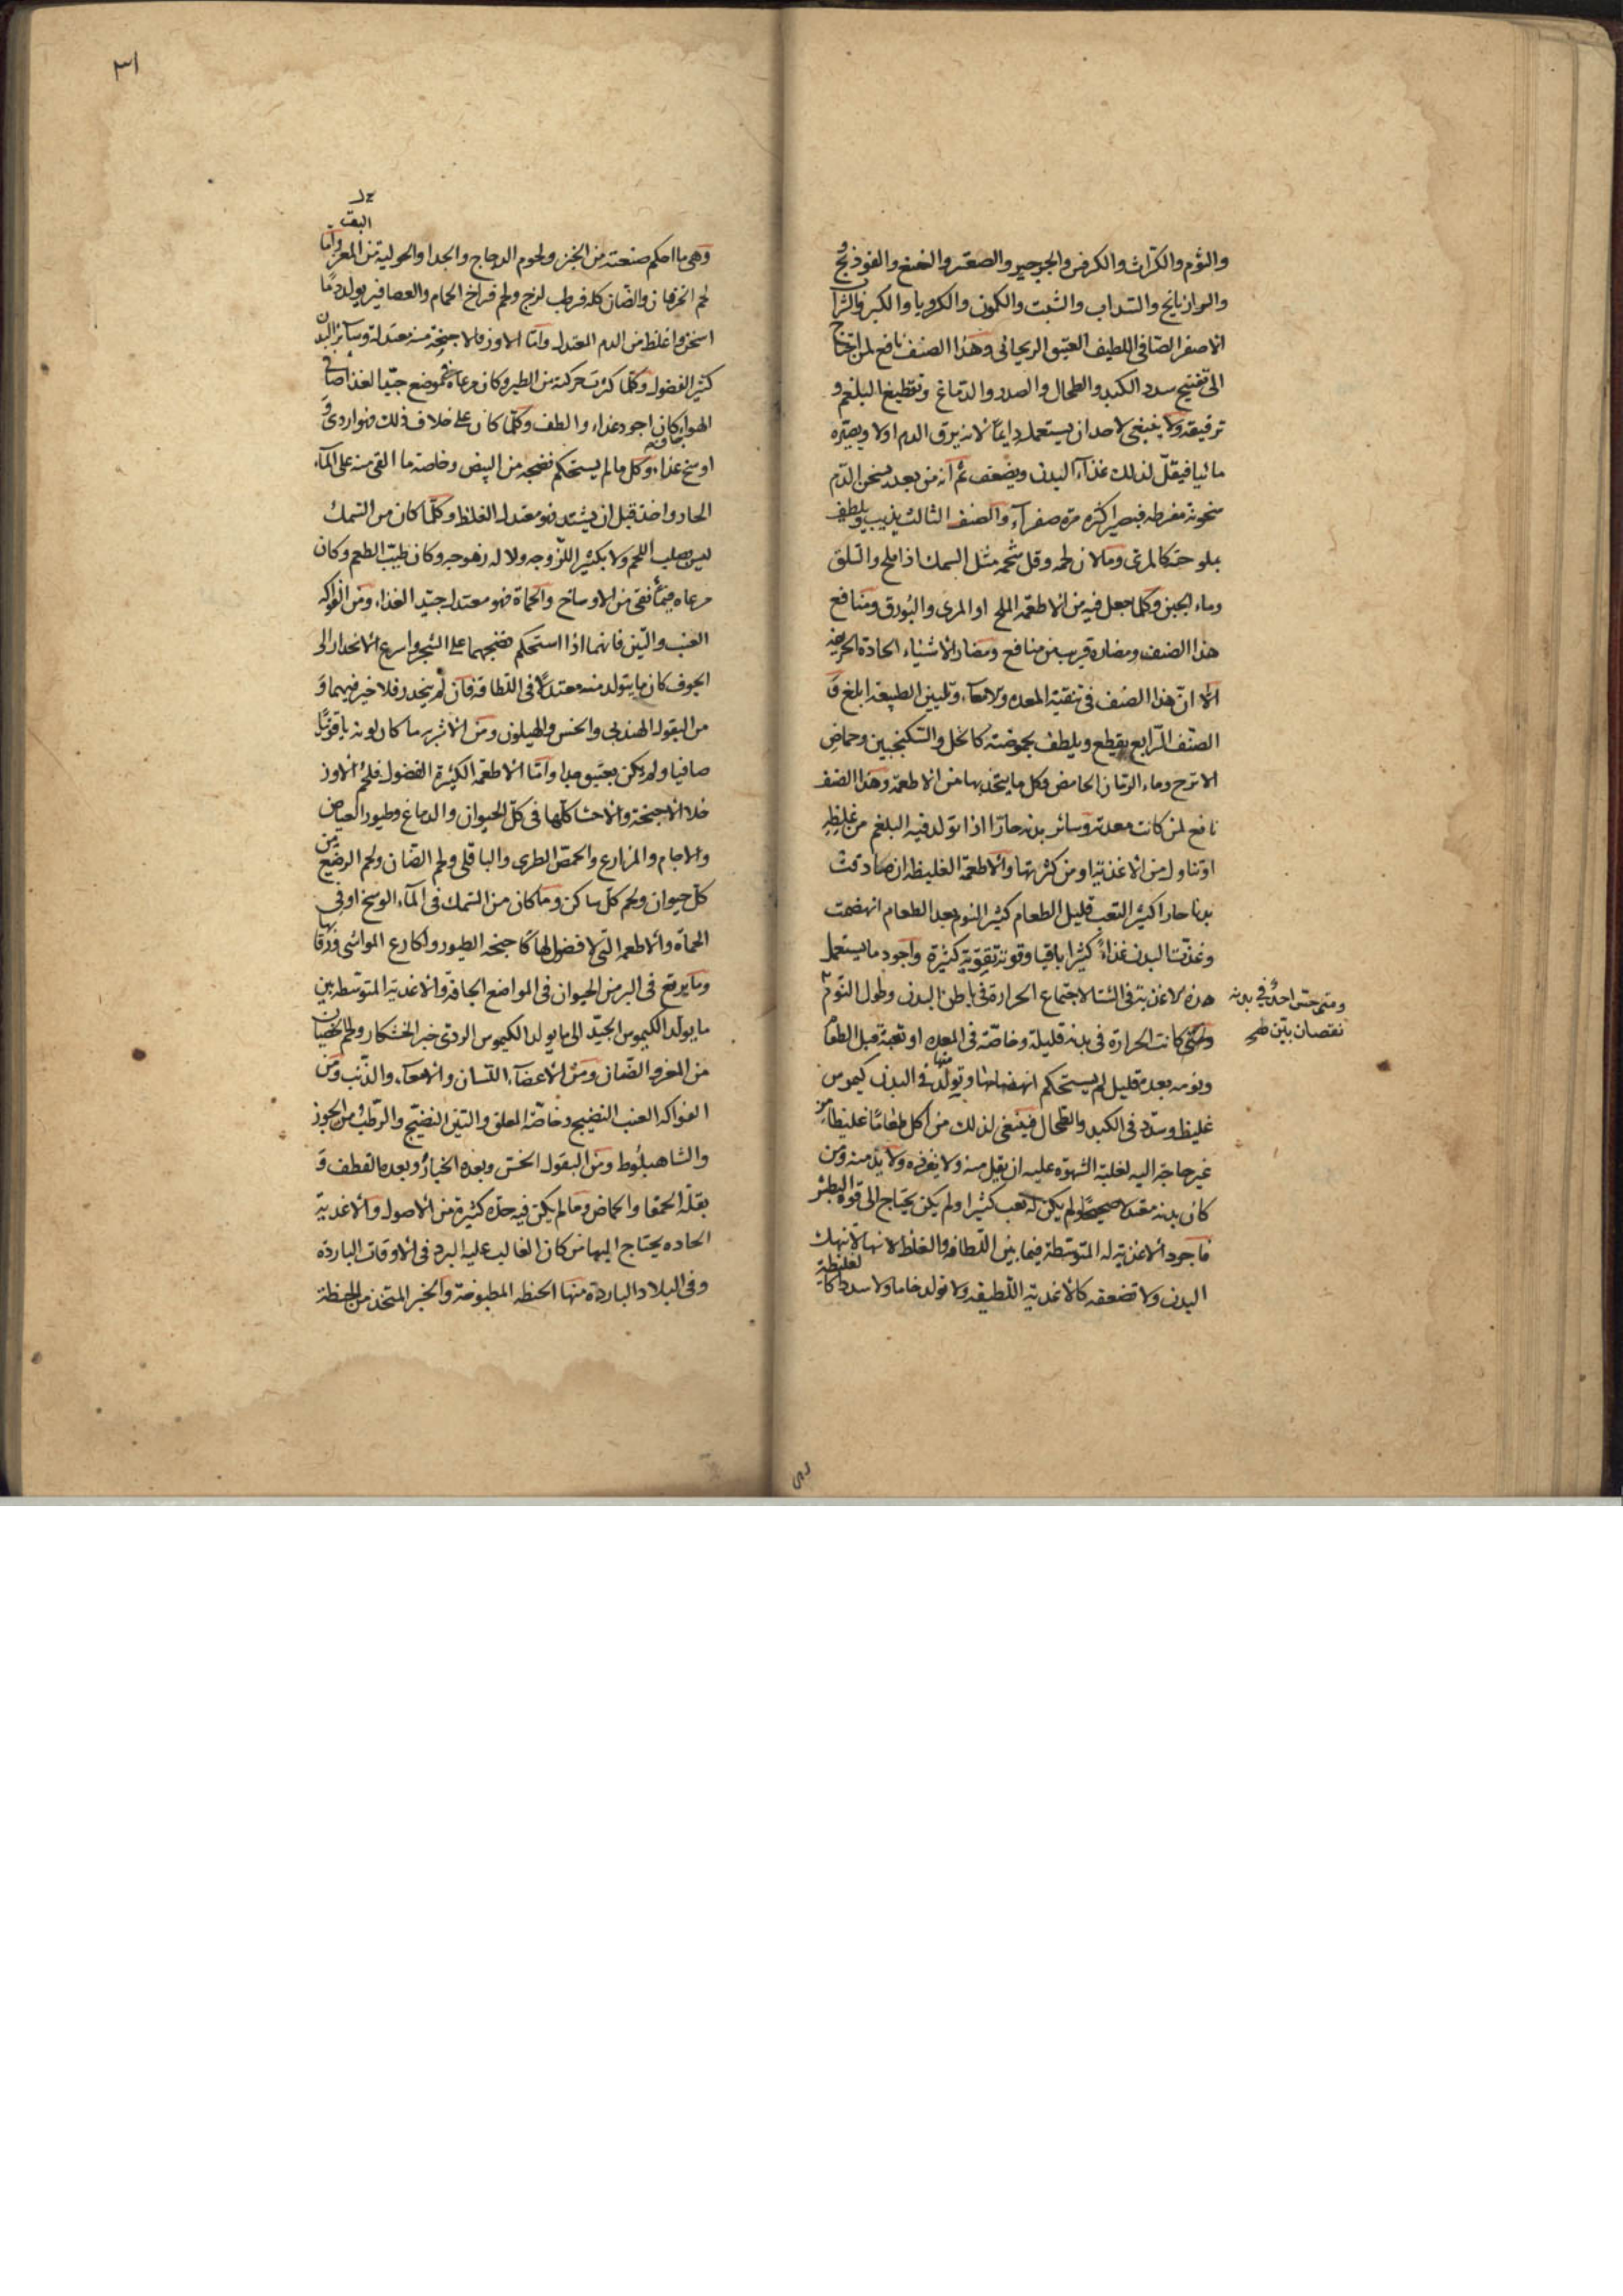 والثوم والكراث والكرفس والجرجير والصعتر والنعنع والفوذنج و
والرازيانج والسداب والشبت والكمون والكرويا والكبر والشراب
الاصفر الصافى اللطيف العتيق الريحانى وهذا الصنف نافع لمن احتاج
الى تفتيح سدد الكبد والطحال والصدر والدماغ وتقطيع البلغم و
ترقيقه ولا ينبغى لاحد ان يستعمله دايماً لانه يرق الدم اولا ويصيره
مائيا فيقل لذلك غذاء البدن ويضعف ثم انه من بعد يسخن الدم
سخونة مفرطه فيصير اكثره مره صفراء والصنف الثالث يذيب ويلطف
بملوحته كالمرى وما لان لحمه وقل شحمه مثل السمك اذا ملح والسلق
وماء الجبن وكلما جعل فيه من الاطعمة الملح او المرى والبورق ومنافع
هذا الصنف ومضاره قريب من منافع ومضار الاشياء الحادة الحريفه
الا ان هذا الصنف فى تنقية المعده والامعاء وتليين الطبيعه ابلغ و
الصنف الرابع يقطع ويلطف بحموضته كالخل والسكنجبين وحماض
الاترج وماء الرمان الحامض وكل ما يتخذ بها من الاطعمة وهذا الصنف
نافع لمن كانت معدته وسائر بدنه حارا اذا تولد فيه البلغم من غليظ
او تناول من الاغذية او من كثرتها والاطعمة الغليظه ان صادفت
بدنا حارا كثير التعب قليل الطعام كثير النوم بعد الطعام انهضمت
وغذت البدن غذاء كثيرا باقيا وقوته تقوية كثيرة واجود ما يستعمل
هذه الاغذية فى الشتا لاجتماع الحرارة فى باطن البدن وطول النوم
ومتى حس احد فى بدنه
نقصان بين
ومتى كانت الحرارة فى بدنه قليلة وخاصة فى المعده او تعبه قبل الطعام
ونومه بعده قليل لم يستحكم انهضامها وتولد منها فى البدن كيموس
غليظ وسدد فى الكبد والطحال فينبغى لذلك من اكل طعاما غليظا من
غير حاجة اليه لغلبة الشهوه عليه ان يقل منه ولا يعوده ولا يدمنه ومن
كان بدنه معتدلا صحيحا ولم يكن له تعب كثيرا ولم يكن يحتاج الى قوة البطش
فاجود الاغذية له المتوسطة فيما بين اللطافه والغلظ لانها لا تنهك
البدن ولا تضعفه كالاغذية اللطيفه ولا تولد خاما ولا سددا كالغليظة
٣١
وهى ما احكم صنعته من الخبز ولحوم الدجاج والجدا والحولية من المعز واما البقر
لحم الخرفان والضان كله فرطب لزج ولحم فراخ الحمام والعصافير يولد دما
اسخن واغلظ من الدم المعتدل واما الاوز فالاجنحة منه معتدلة وسائر البدن
كثير الفضول وكلما كثرت حركته من الطير وكان مرعاه فى موضع جيد الغذا صافى
الهواء كان اجود غذاء والطف وكلما كان على خلاف ذلك فهو اردى و
اوسخ غذاء وكل ما لم يستحكم نضجه من البيض وخاصة ما القى منه على الماء
الحار واخذ قبل ان يشتد فهو معتدل الغلظ وكلما كان من السمك
ليس بصلب اللحم ولا بكثير اللزوجه ولا له زهوجه وكان طيب الطعم وكان
مرعاه فيما نقى من الاوساخ والحماة فهو معتدل جيد الغذاء ومن الفواكه
العنب والتين فانهما اذا استحكم نضجهما على الشجر واسرع الانحدار الى
الجوف كان ما يتولد منه معتدلا فى اللطافة فان لم ينحدر فلا خير فيهما و
من البقول الهندبى والخس والهيلون ومن الاشربه ما كان لونه ياقوتيا
صافيا ولم يكن بعتيق جدا واما الاطعمة الكثيرة الفضول فلحم الاوز
خلا الاجنحة والاحشا كلها فى كل الحيوان والدماغ وطيور الغياض
والاجام والمزارع والحمص الطرى والباقلى ولحم الضان ولحم الرضيع من
كل حيوان ولحم كل ساكن وما كان من السمك فى الماء الوسخ او فى
الحماة والاطعمه التى لا فضول لها كاجنحه الطيور واكارع المواشى ورقابها
وما يرتع فى البر من الحيوان فى المواضع الجافة والاغدية المتوسطه بين
ما يولد الكيموس الجيد الى ما يولد الكيموس الردى خبز الخشكار ولحم الخصيان
من المعز والضان ومن الاعضاء اللسان والامعاء والذنب ومن
الفواكه العنب النضيج وخاصة المعلق والتين النضيج والرطب من الجوز
والشاهبلوط ومن البقول الخس وبعده الخباز وبعده القطف و
بقلة الحمقا والحماض وما لم يكن فيه حدة كثيرة من الاصول والاغدية
الحاده يحتاج اليها من كان الغالب عليه البرد فى الاوقات الباردة
وفى البلاد الباردة منها الحنطه المطبوخة والخبز المتخذ من الحنطة